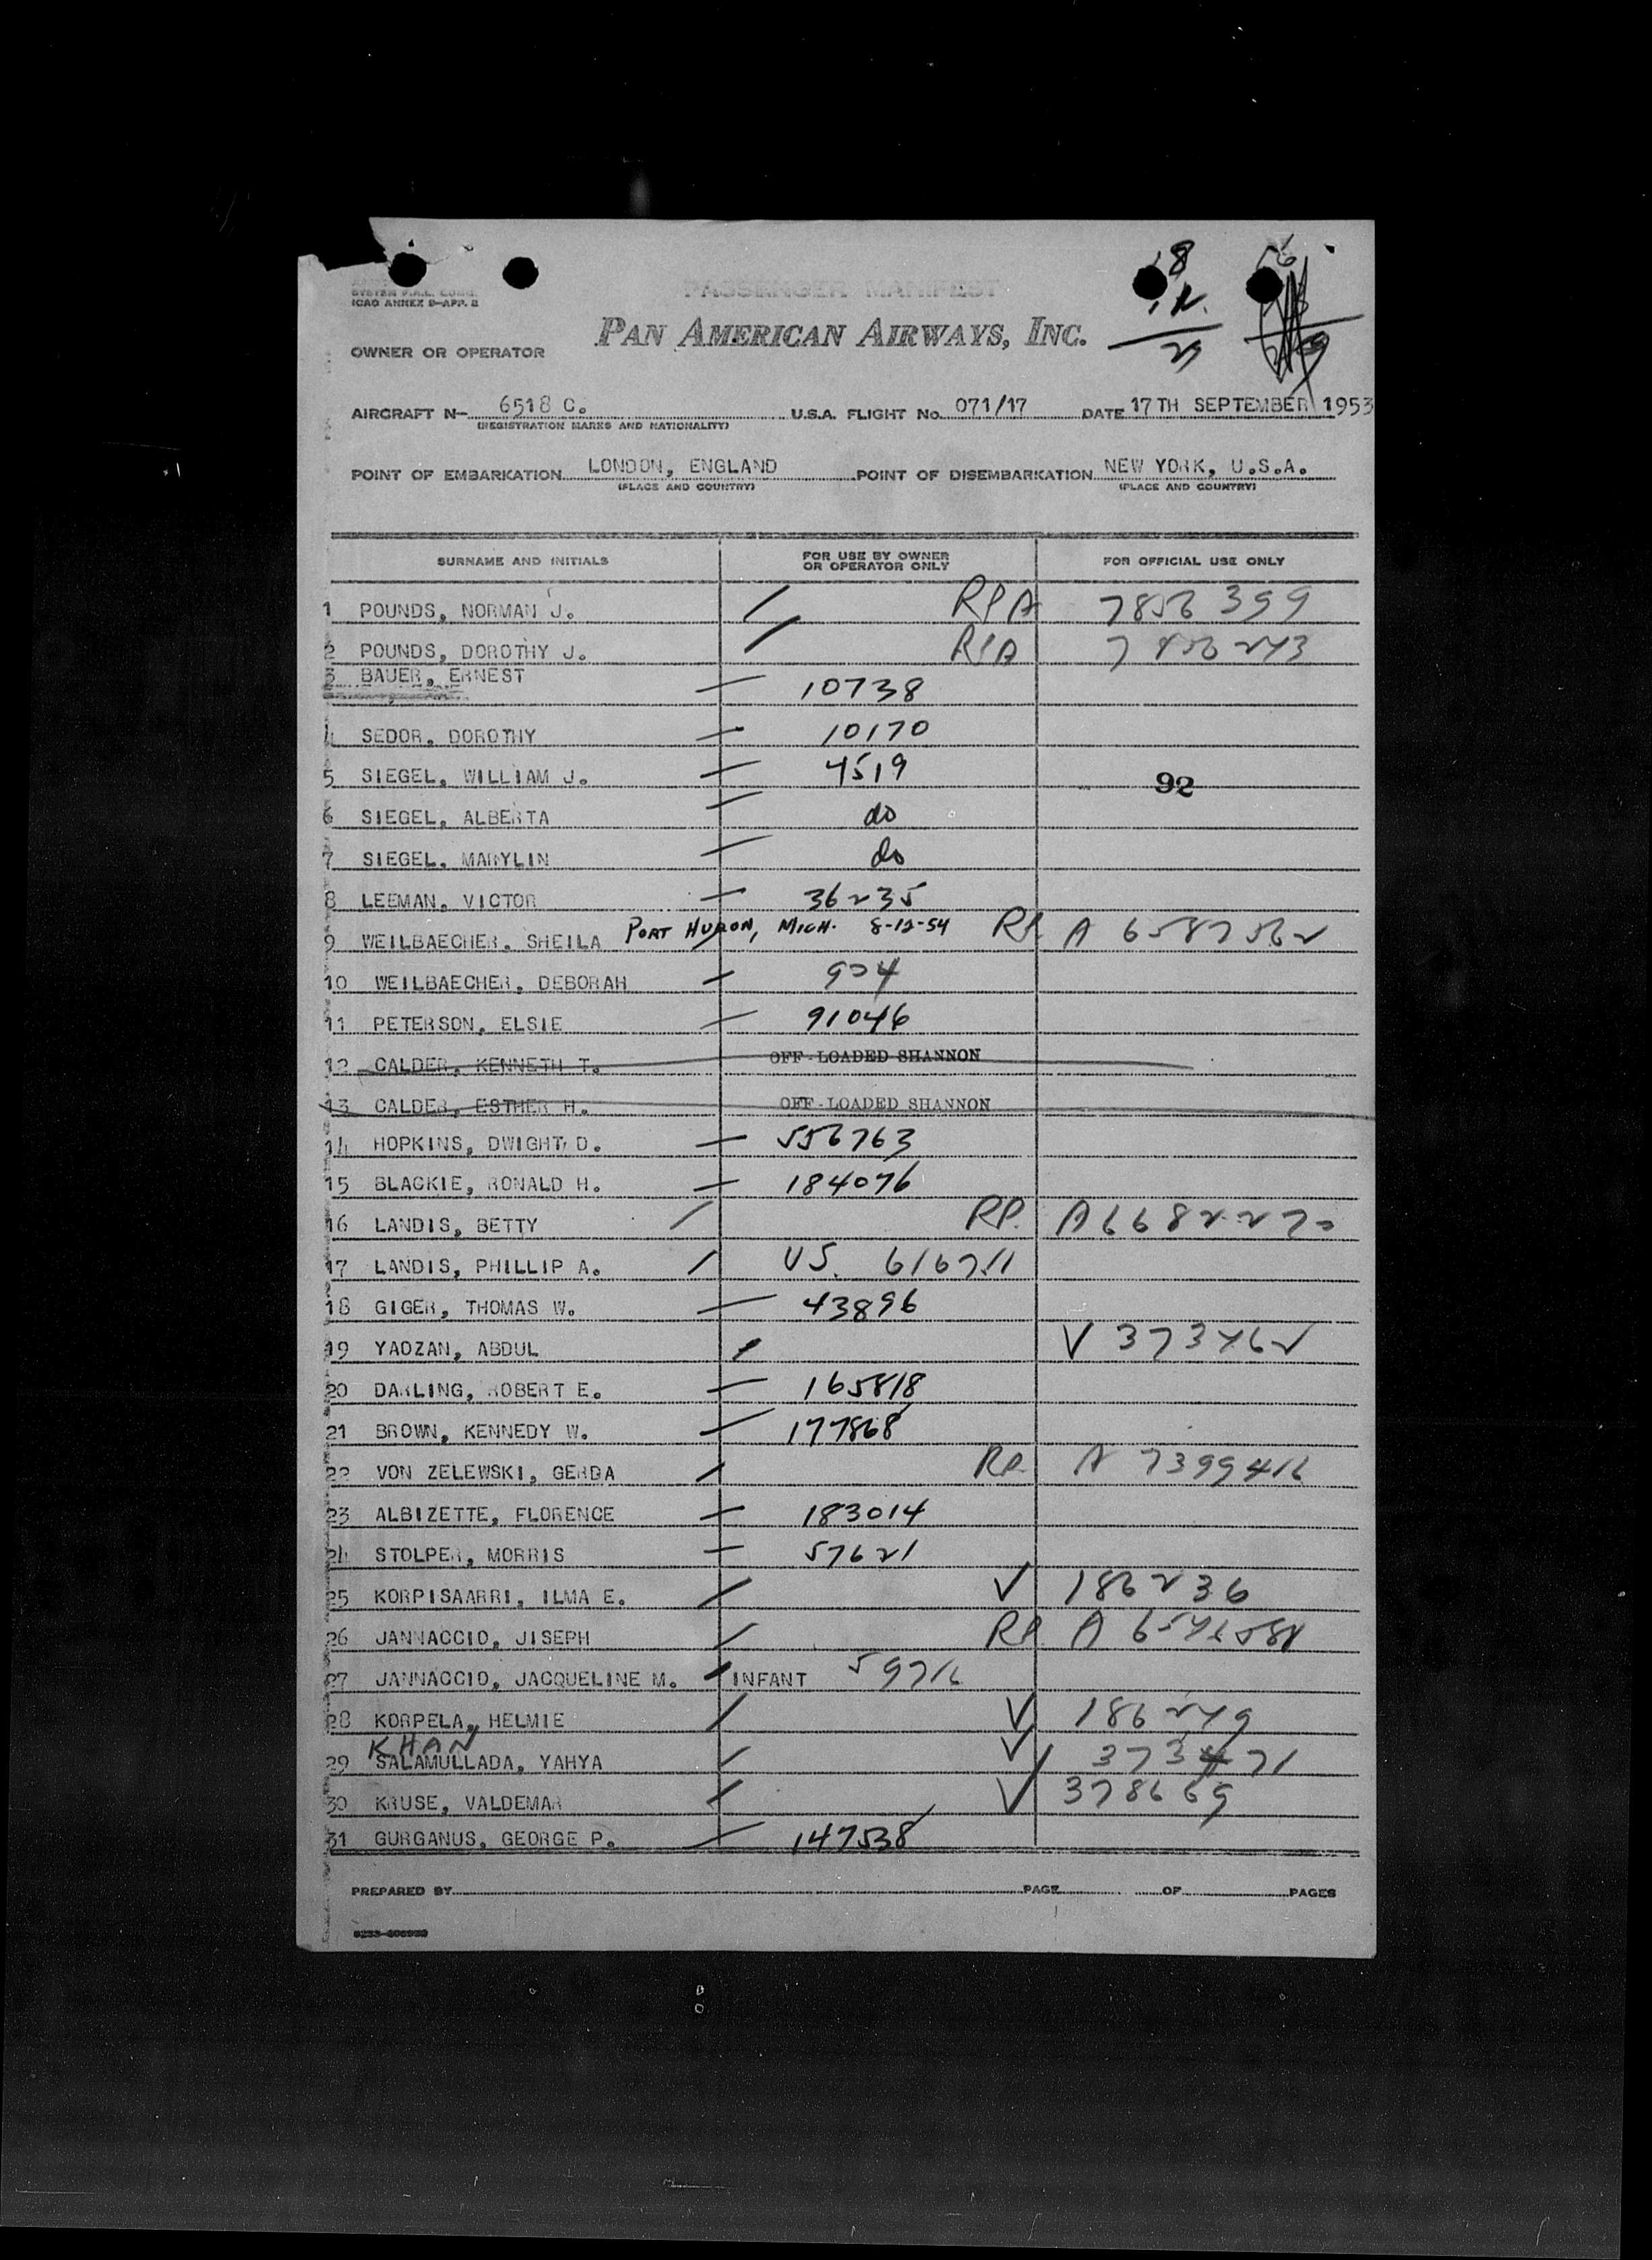 18 56
12
SYSTEM F.A.L. COMM.
ICAO ANNEX 9-APP. 2
PASSENGER MANIFEST
PAN AMERICAN AIRWAYS, INC.
OWNER OR OPERATOR
AIRCRAFT N- 6518 C. U.S.A. FLIGHT No. 071/17 DATE 17TH SEPTEMBER 1953
(REGISTRATION MARKS AND NATIONALITY)
POINT OF EMBARKATION LONDON, ENGLAND POINT OF DISEMBARKATION NEW YORK, U.S.A.
(PLACE AND COUNTRY) (PLACE AND COUNTRY)
SURNAME AND INITIALS FOR USE BY OWNER OR OPERATOR ONLY FOR OFFICIAL USE ONLY
1 POUNDS, NORMAN J. RP A 7856399
2 POUNDS, DOROTHY J. RP A
3 BAUER, ERNEST 10738
4 SEDOR, DOROTHY 10170
5 SIEGEL, WILLIAM J. 4519
92
6 SIEGEL, ALBERTA do
7 SIEGEL, MARYLIN do
8 LEEMAN, VICTOR 36235
9 WEILBAECHER, SHEILA PORT HURON, MICH. 8-12-54 RP A 6587562
10 WEILBAECHER, DEBORAH 904
11 PETERSON, ELSIE 91046
12 CALDER, KENNETH T. OFF-LOADED SHANNON
13 CALDER, ESTHER H. OFF-LOADED SHANNON
14 HOPKINS, DWIGHT D. 556763
15 BLACKIE, RONALD H. 184076
16 LANDIS, BETTY RP. A6682270
17 LANDIS, PHILLIP A. US. 616711
18 GIGER, THOMAS W. 43896
19 YAOZAN, ABDUL V 373462
20 DARLING, ROBERT E. 165818
21 BROWN, KENNEDY W. 177868
22 VON ZELEWSKI, GERDA RP. A 7399416
23 ALBIZETTE, FLORENCE 183014
24 STOLPER, MORRIS 57621
25 KORPISAARRI, ILMA E. V 186236
26 JANNACCIO, JISEPH RP A
27 JANNACCIO, JACQUELINE M. INFANT 59716
28 KORPELA, HELMIE V 186249
KHAN
29 SALAMULLADA, YAHYA V 373471
30 KRUSE, VALDEMAR V 378669
31 GURGANUS, GEORGE P. 147538
PREPARED BY PAGE OF PAGES